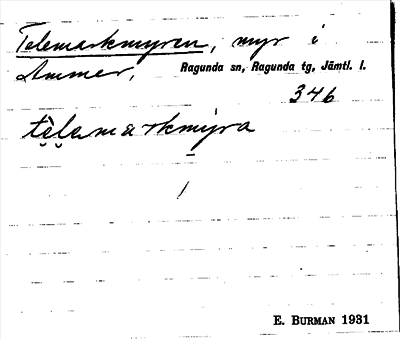 Telemarkmyren, myr i
Ammer, Ragunda sn, Ragunda tg, Jämtl. l.
346
tèlamarkmyra
/
E. BURMAN 1931